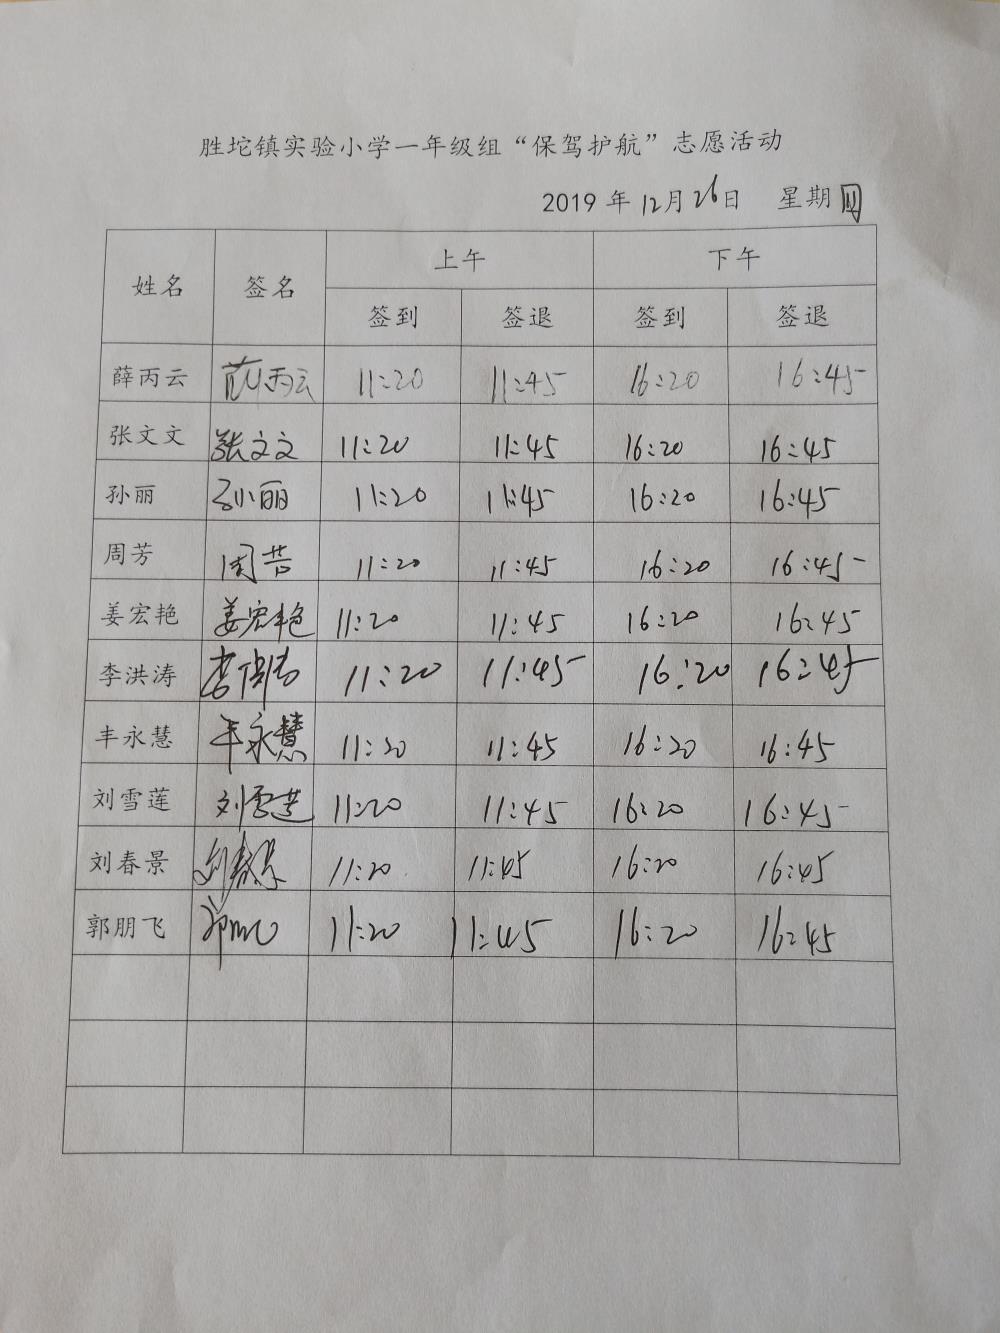 胜坨镇实验小学一年级组“保驾护航”志愿活动
2019年12月26日 星期四
姓名 签名 上午 下午
签到 签退 签到 签退
薛丙云 薛丙云 11:20 11:45 16:20 16:45
张文文 张文文 11:20 11:45 16:20 16:45
孙丽 孙丽 11:20 11:45 16:20 16:45
周芳 周芳 11:20 11:45 16:20 16:45
姜宏艳 姜宏艳 11:20 11:45 16:20 16:45
李洪涛 李洪涛 11:20 11:45 16:20 16:45
丰永慧 丰永慧 11:20 11:45 16:20 16:45
刘雪莲 刘雪莲 11:20 11:45 16:20 16:45
刘春景 刘春景 11:20 11:45 16:20 16:45
郭朋飞 11:20 11:45 16:20 16:45